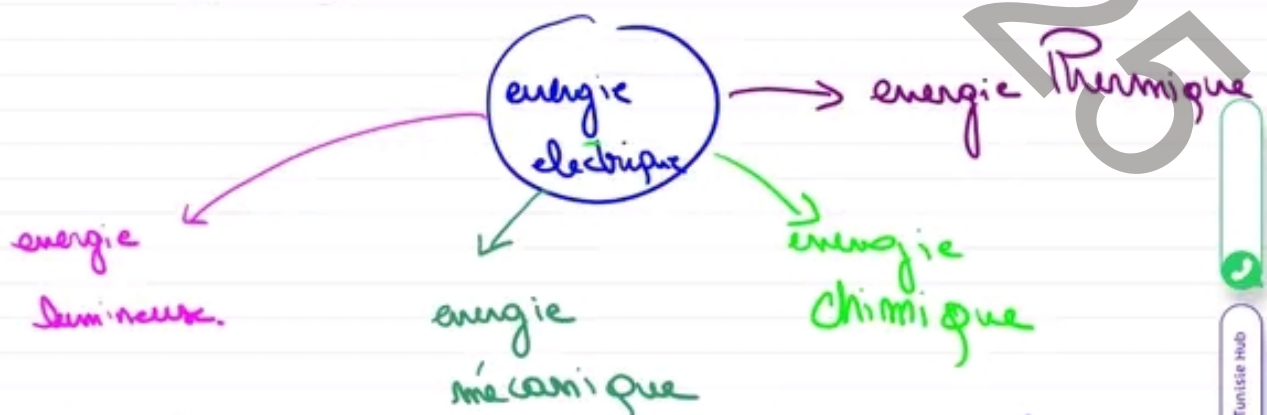 energie
electrique
energie Thermique
energie
lumineuse.
energie
mécanique
energie
chimique
25
unisie Hub